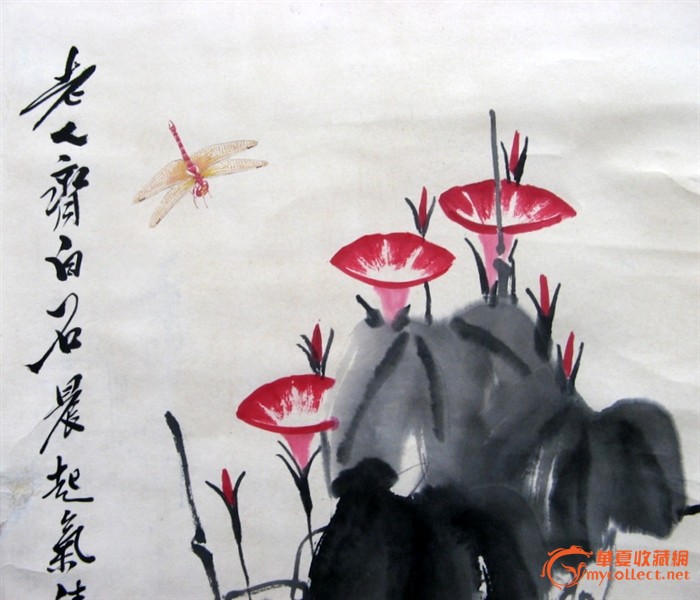 老人齊白石晨起氣
華夏收藏網
mycollect.net